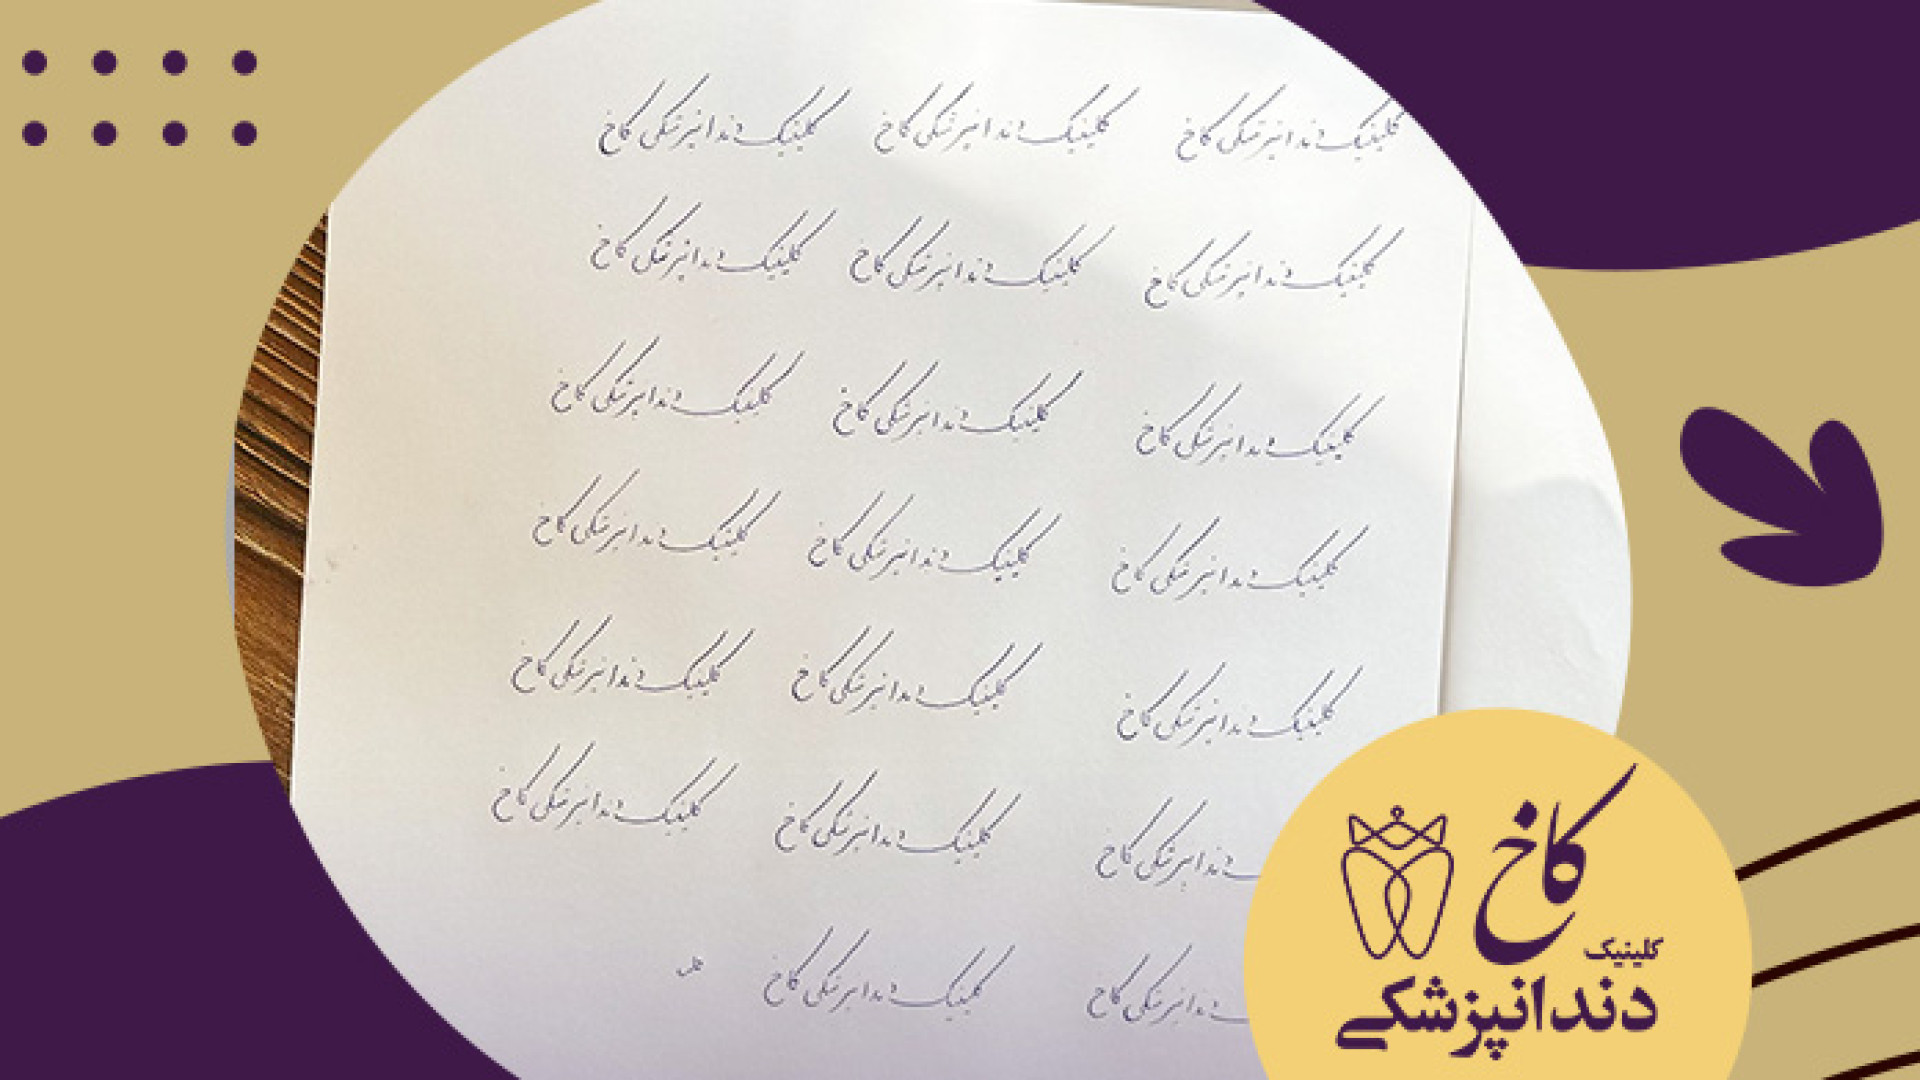 کلینیک دندانپزشکی کاخ کلینیک دندانپزشکی کاخ کلینیک دندانپزشکی کاخ
کلینیک دندانپزشکی کاخ کلینیک دندانپزشکی کاخ کلینیک دندانپزشکی کاخ
کلینیک دندانپزشکی کاخ کلینیک دندانپزشکی کاخ کلینیک دندانپزشکی کاخ
کلینیک دندانپزشکی کاخ کلینیک دندانپزشکی کاخ کلینیک دندانپزشکی کاخ
کلینیک دندانپزشکی کاخ کلینیک دندانپزشکی کاخ کلینیک دندانپزشکی کاخ
دندانپزشکی کاخ کلینیک دندانپزشکی کاخ کلینیک دندانپزشکی کاخ
دندانپزشکی کاخ کلینیک دندانپزشکی کاخ
کاخ
کلینیک
دندانپزشکی